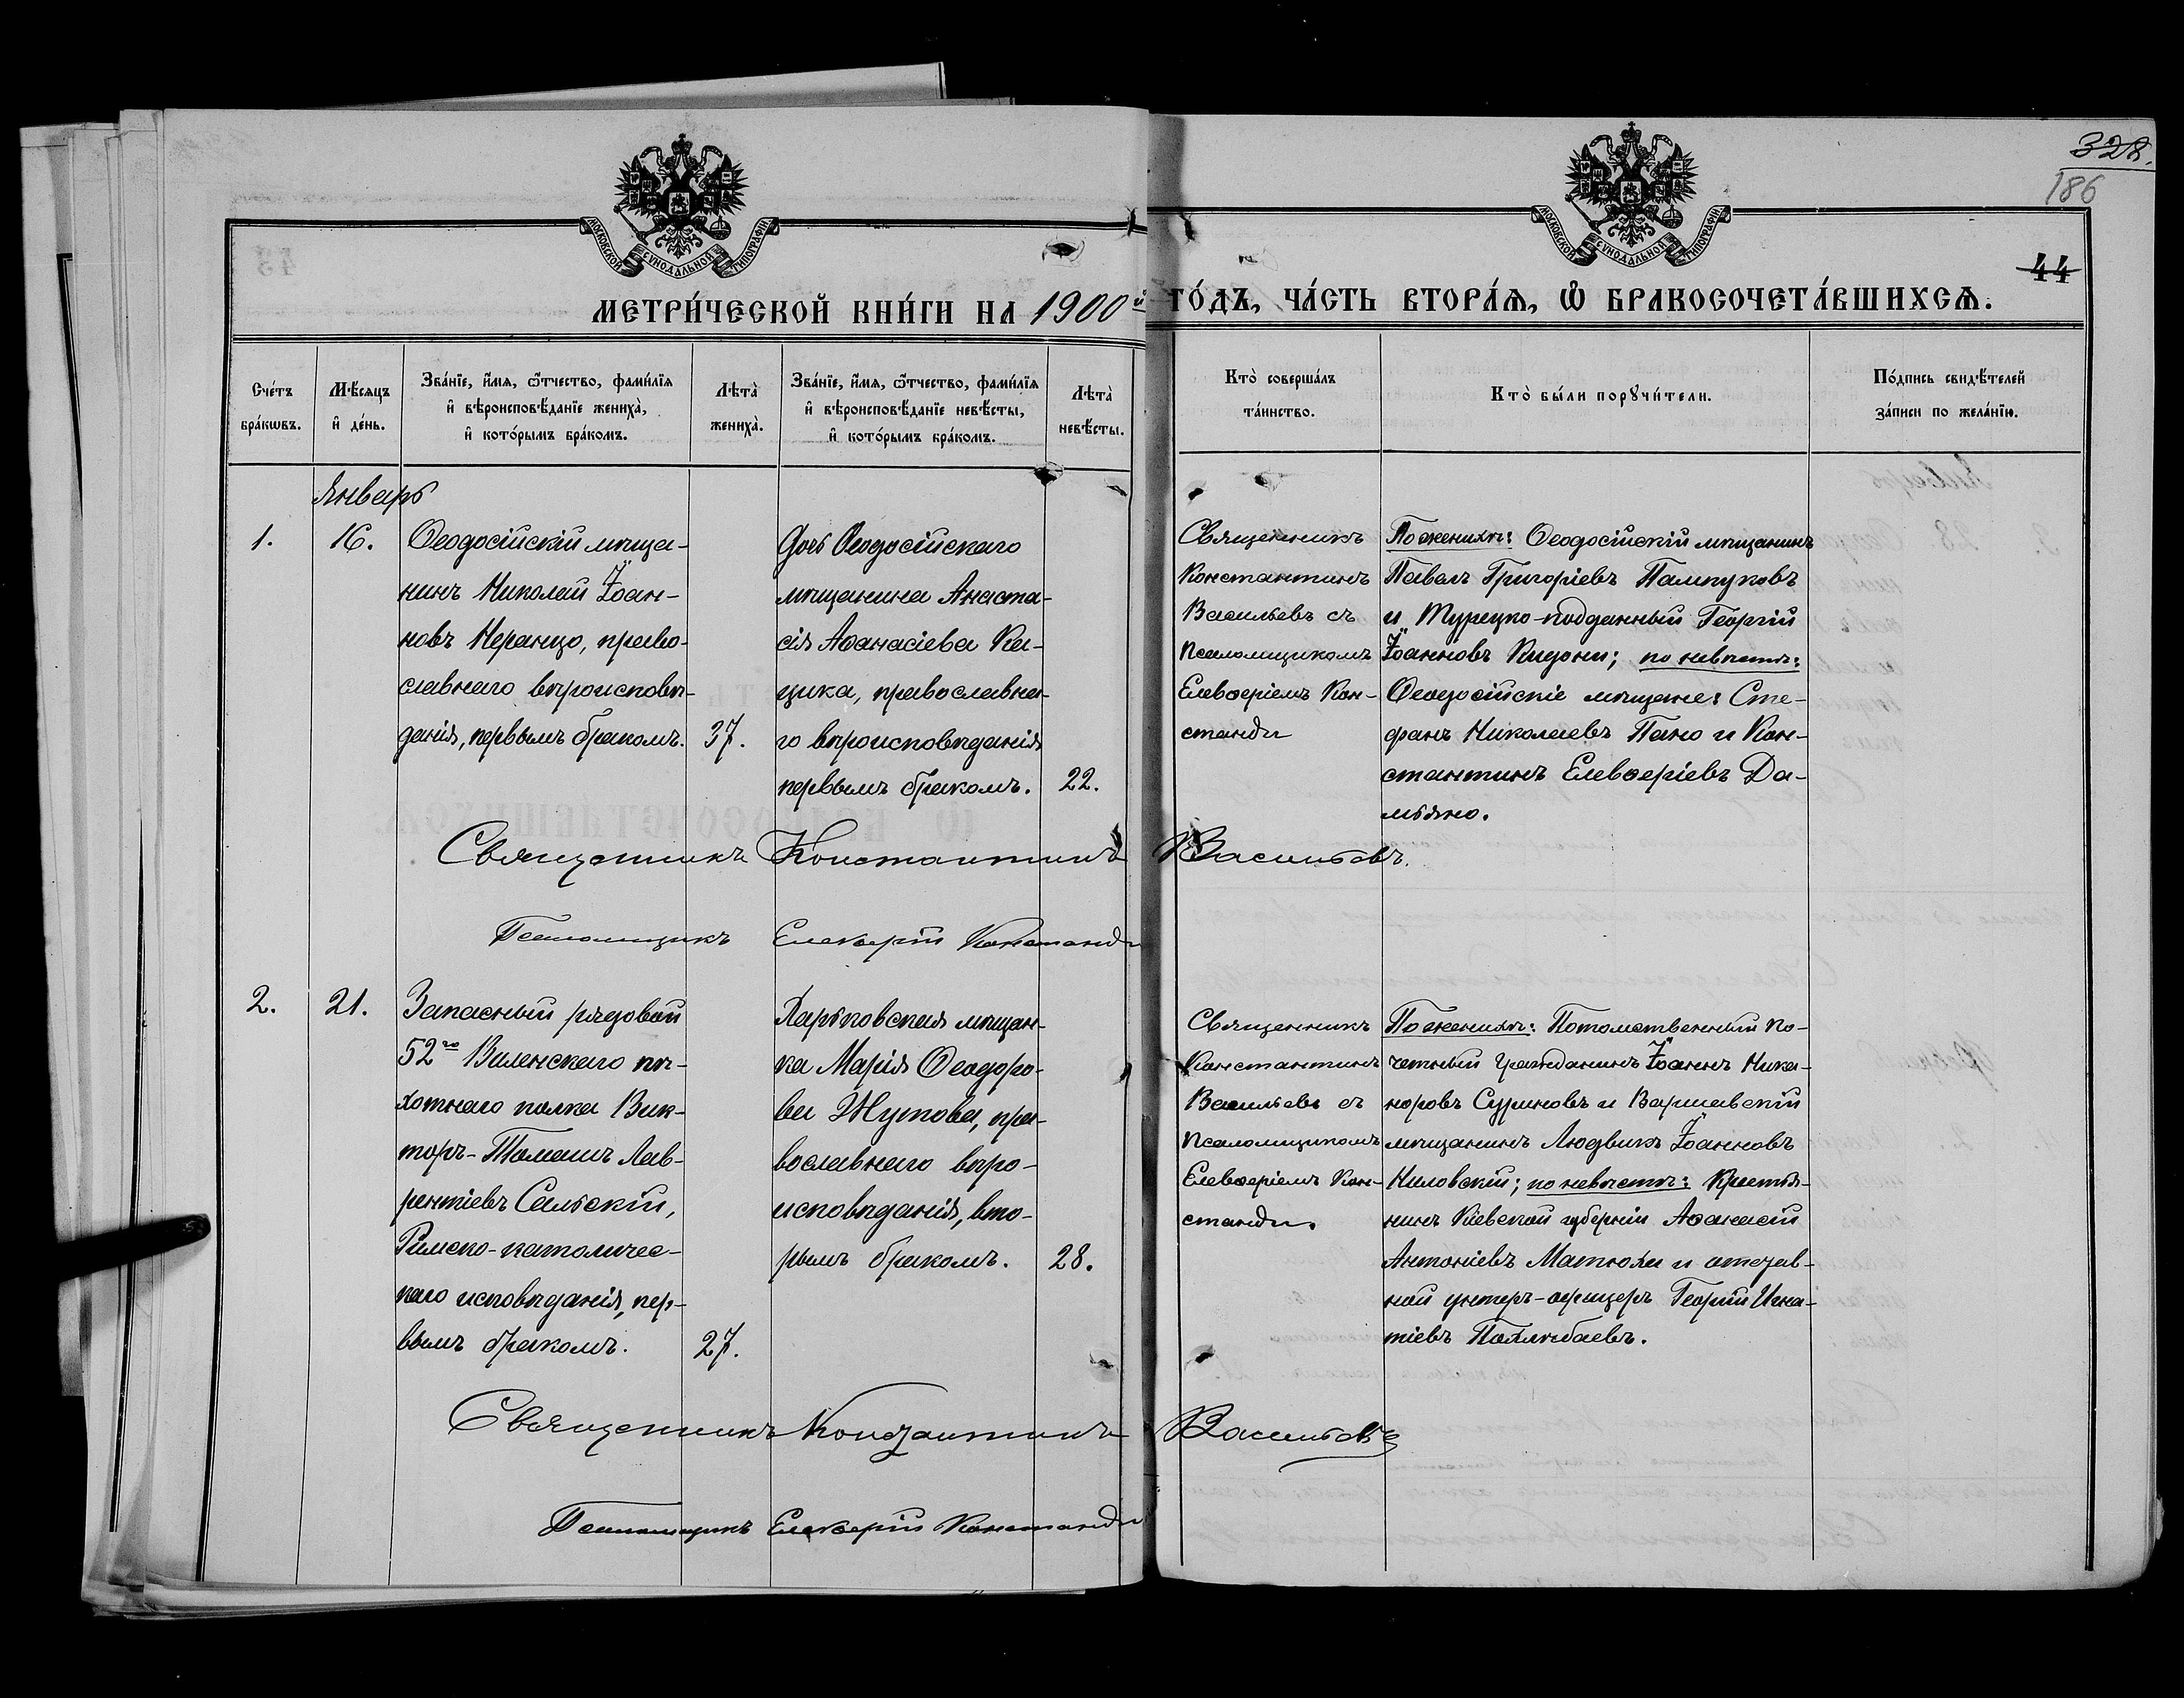 328.
186
44
МОСКОВСКОЙ СѴНОДАЛЬНОЙ ТИПОГРАФІИ
МОСКОВСКОЙ СѴНОДАЛЬНОЙ ТИПОГРАФІИ
МЕТРИ́ЧЕСКОЙ КНИ́ГИ НА 1900й ГО́ДЪ, ЧА́СТЬ ВТОРА́Я, Ѡ БРАКОСОЧЕТА́ВШИХСЯ.
Сче́тъ
бра́кѡвъ.
Мѣ́сяцъ
и҆ де́нь.
Зва́нїе, и҆́мя, ѻ҆́тчество, фами́лїя
и҆ вѣроисповѣ́данїе жениха̀,
и҆ кото́рымъ бра́комъ.
Лѣта̀
жениха̀.
Зва́нїе, и҆́мя, ѻ҆́тчество, фами́лїя
и҆ вѣроисповѣ́данїе невѣ́сты,
и҆ кото́рымъ бра́комъ.
Лѣта̀
невѣ́сты.
Кто̀ соверша́лъ
та́инство.
Кто̀ бы́ли порꙋчи́тели.
По́дпись свидѣ́телей
за́писи по жела́нїю.
Январь
1.
16.
Ѳеодосійскій мѣща-
нинъ Николай Іоан-
новъ Неранцо, право-
славнаго вѣроисповѣ-
данія, первымъ бракомъ.
37.
Дочь Ѳеодосійскаго
мѣщанина Анаста-
сія Аѳанасіева Ка-
цика, православна-
го вѣроисповѣданія
первымъ бракомъ.
22.
Священникъ
Константинъ
Васильевъ съ
псаломщикомъ
Елевѳеріемъ Кон-
станди
По женихѣ: Ѳеодосійскій мѣщанинъ
Павелъ Григоріевъ Пампуковъ
и Турецко-подданный Георгій
Іоанновъ Кидони; по невѣстѣ:
Ѳеодосійскіе мѣщане: Сте-
фанъ Николаевъ Пано и Кон-
стантинъ Елевѳеріевъ Да-
мьяно.
Священникъ Константинъ Васильевъ.
Псаломщикъ Елевѳерій Констанди
2.
21.
Запасный рядовой
52го Виленскаго пѣ-
хотнаго полка Вик-
торъ-Томашъ Лав-
рентіевъ Сальскій,
Римско-католичес-
каго исповѣданія, пер-
вымъ бракомъ.
27.
Харьковская мѣщан-
ка Марія Ѳеодоро-
ва Жутова, пра-
вославнаго вѣро-
исповѣданія, вто-
рымъ бракомъ.
28.
Священникъ
Константинъ
Васильевъ съ
псаломщикомъ
Елевѳеріемъ Кон-
станди.
По женихѣ: Потомственный по-
четный гражданинъ Іоаннъ Ника-
норовъ Суриновъ и Варшавскій
мѣщанинъ Людвикъ Іоанновъ
Ниловскій; по невѣстѣ: Крестья-
нинъ Кіевской губерніи Аѳанасій
Антоніевъ Матюха и отстав-
ной унтеръ-офицеръ Георгій Игна-
тіевъ Похлѣбаевъ.
Священникъ Константинъ Васильевъ
Псаломщикъ Елевѳерій Констанди